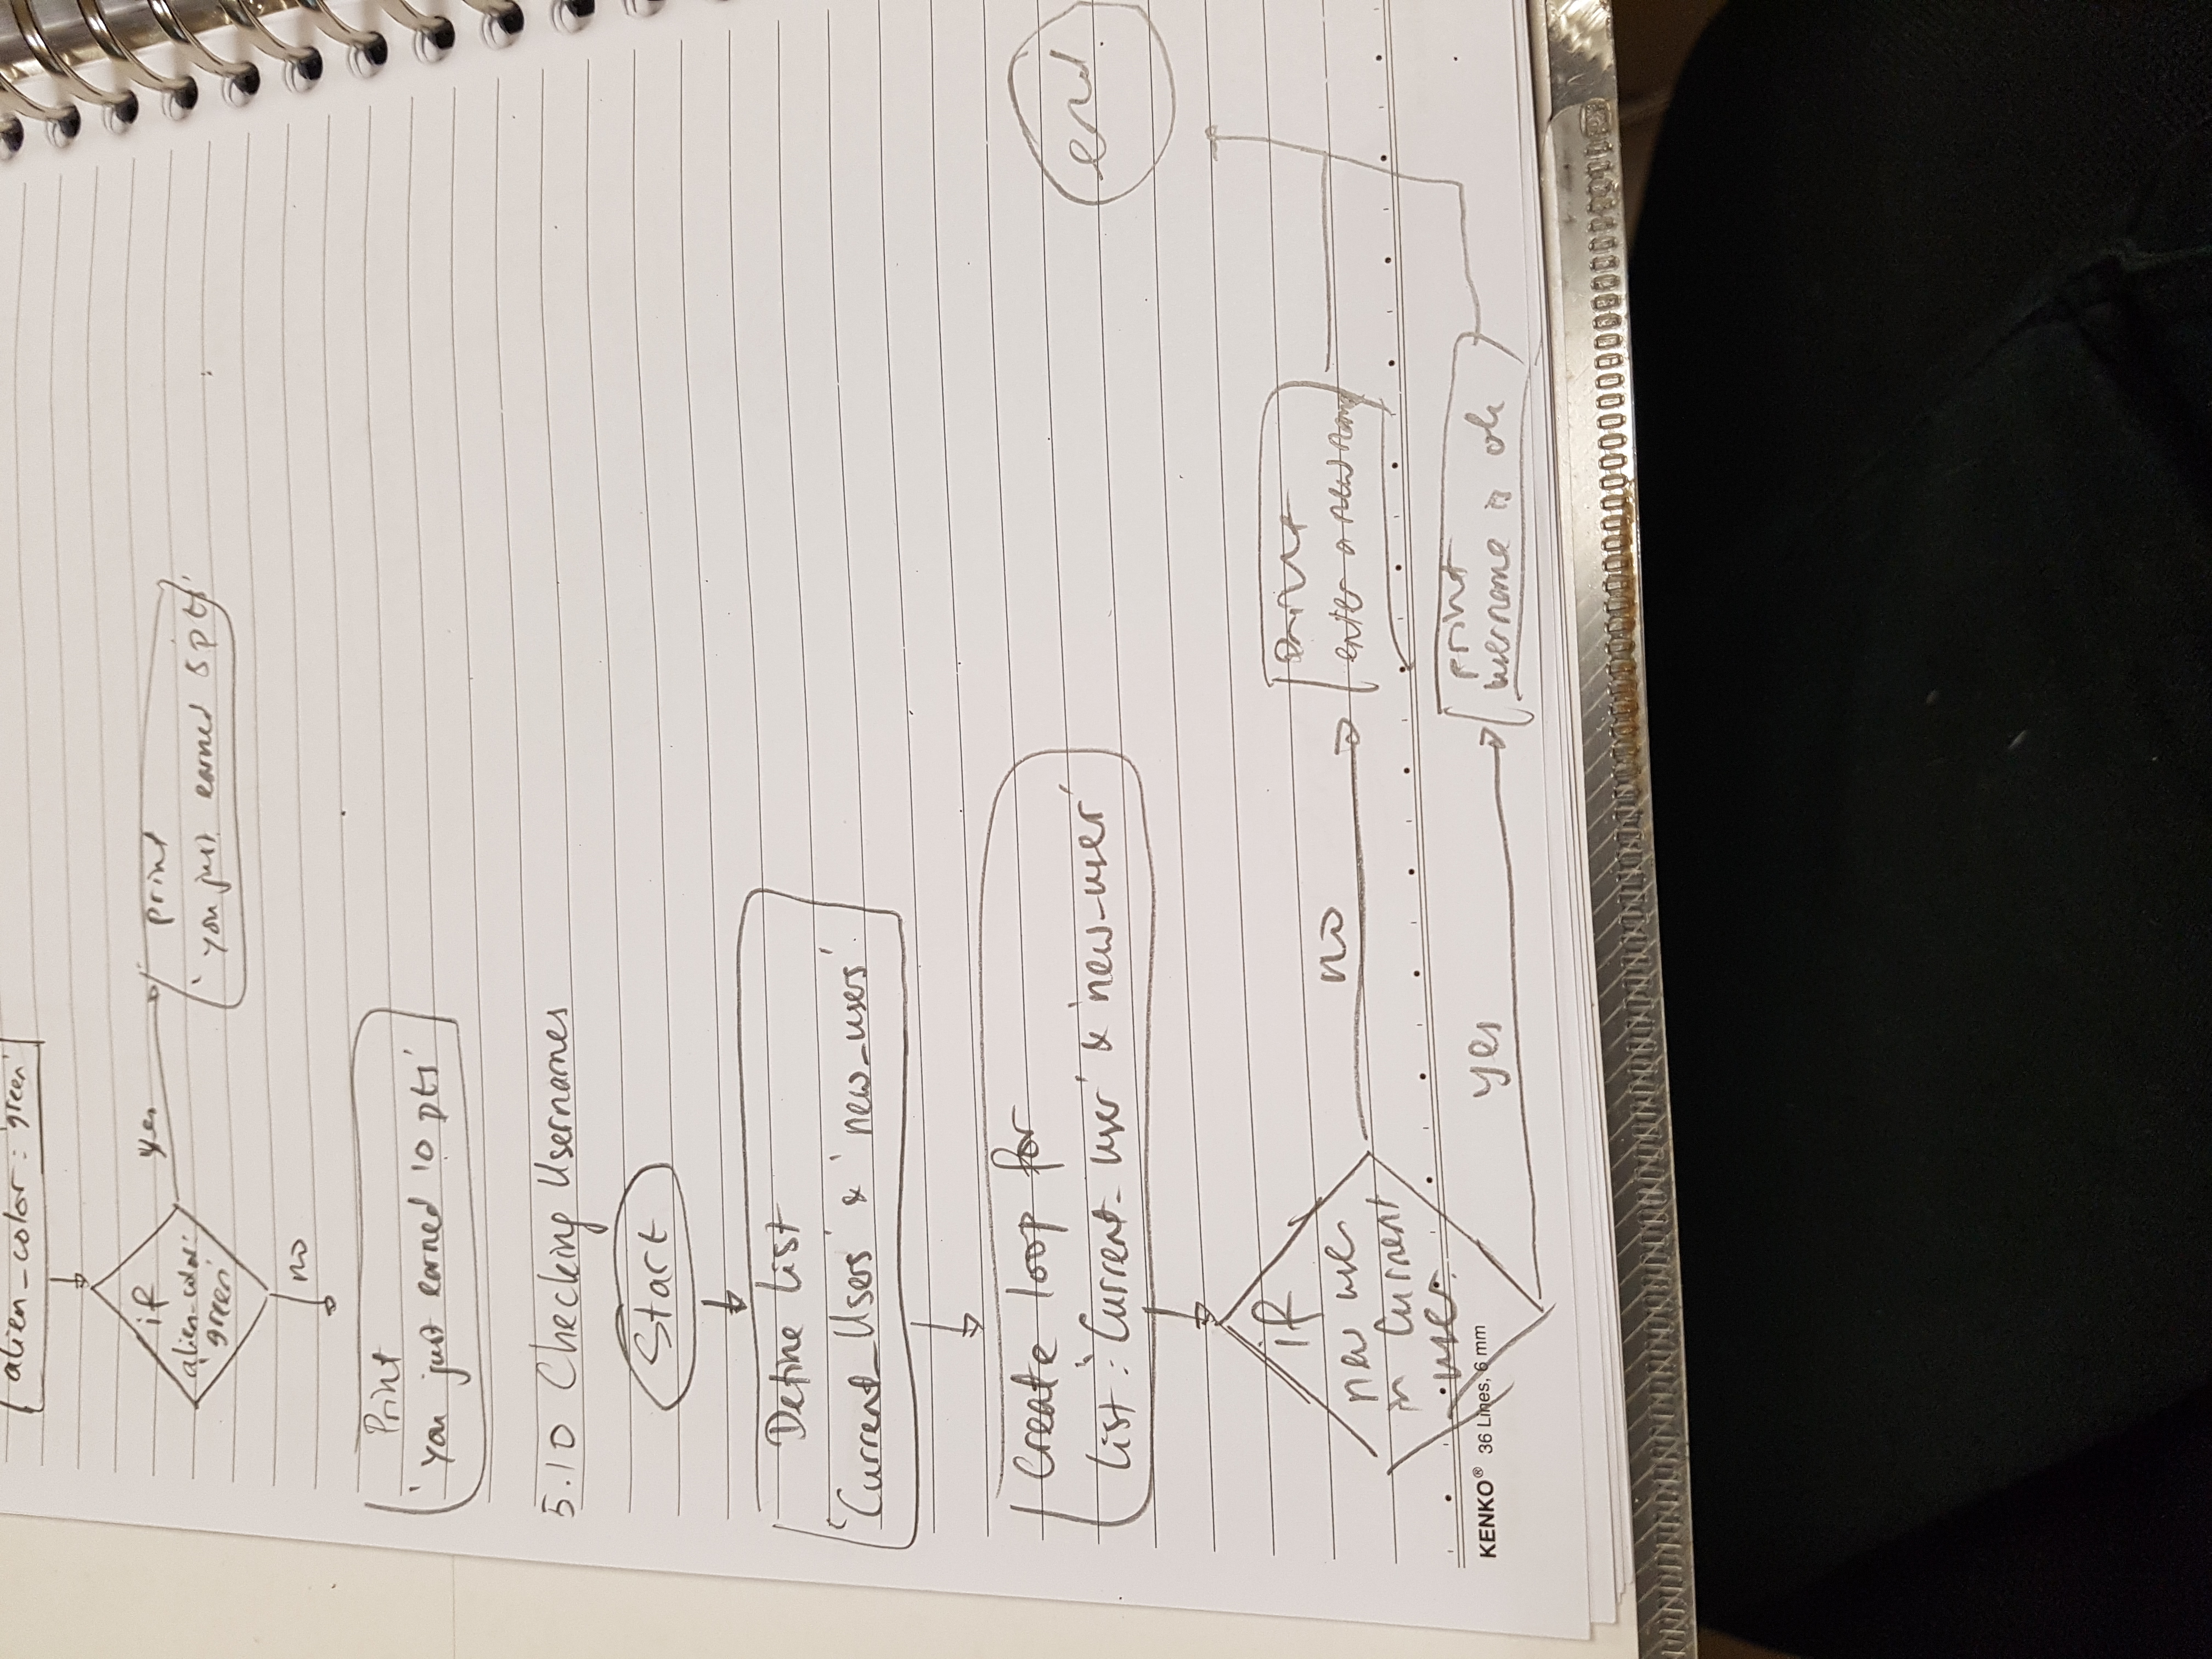 alien_color : 'green'
if
alien-color:
'green'
yes
print
'you just earned 5 pts'
no
Print
'you just earned 10 pts'
5.10 Checking Usernames
Start
Define list
'Current_Users' & 'new_users'
Create loop for
list : 'Current_user' & 'new-user'
end
if
new user
in Current
user
no
print
enter a new name
yes
print
username is ok
KENKO® 36 Lines, 6 mm